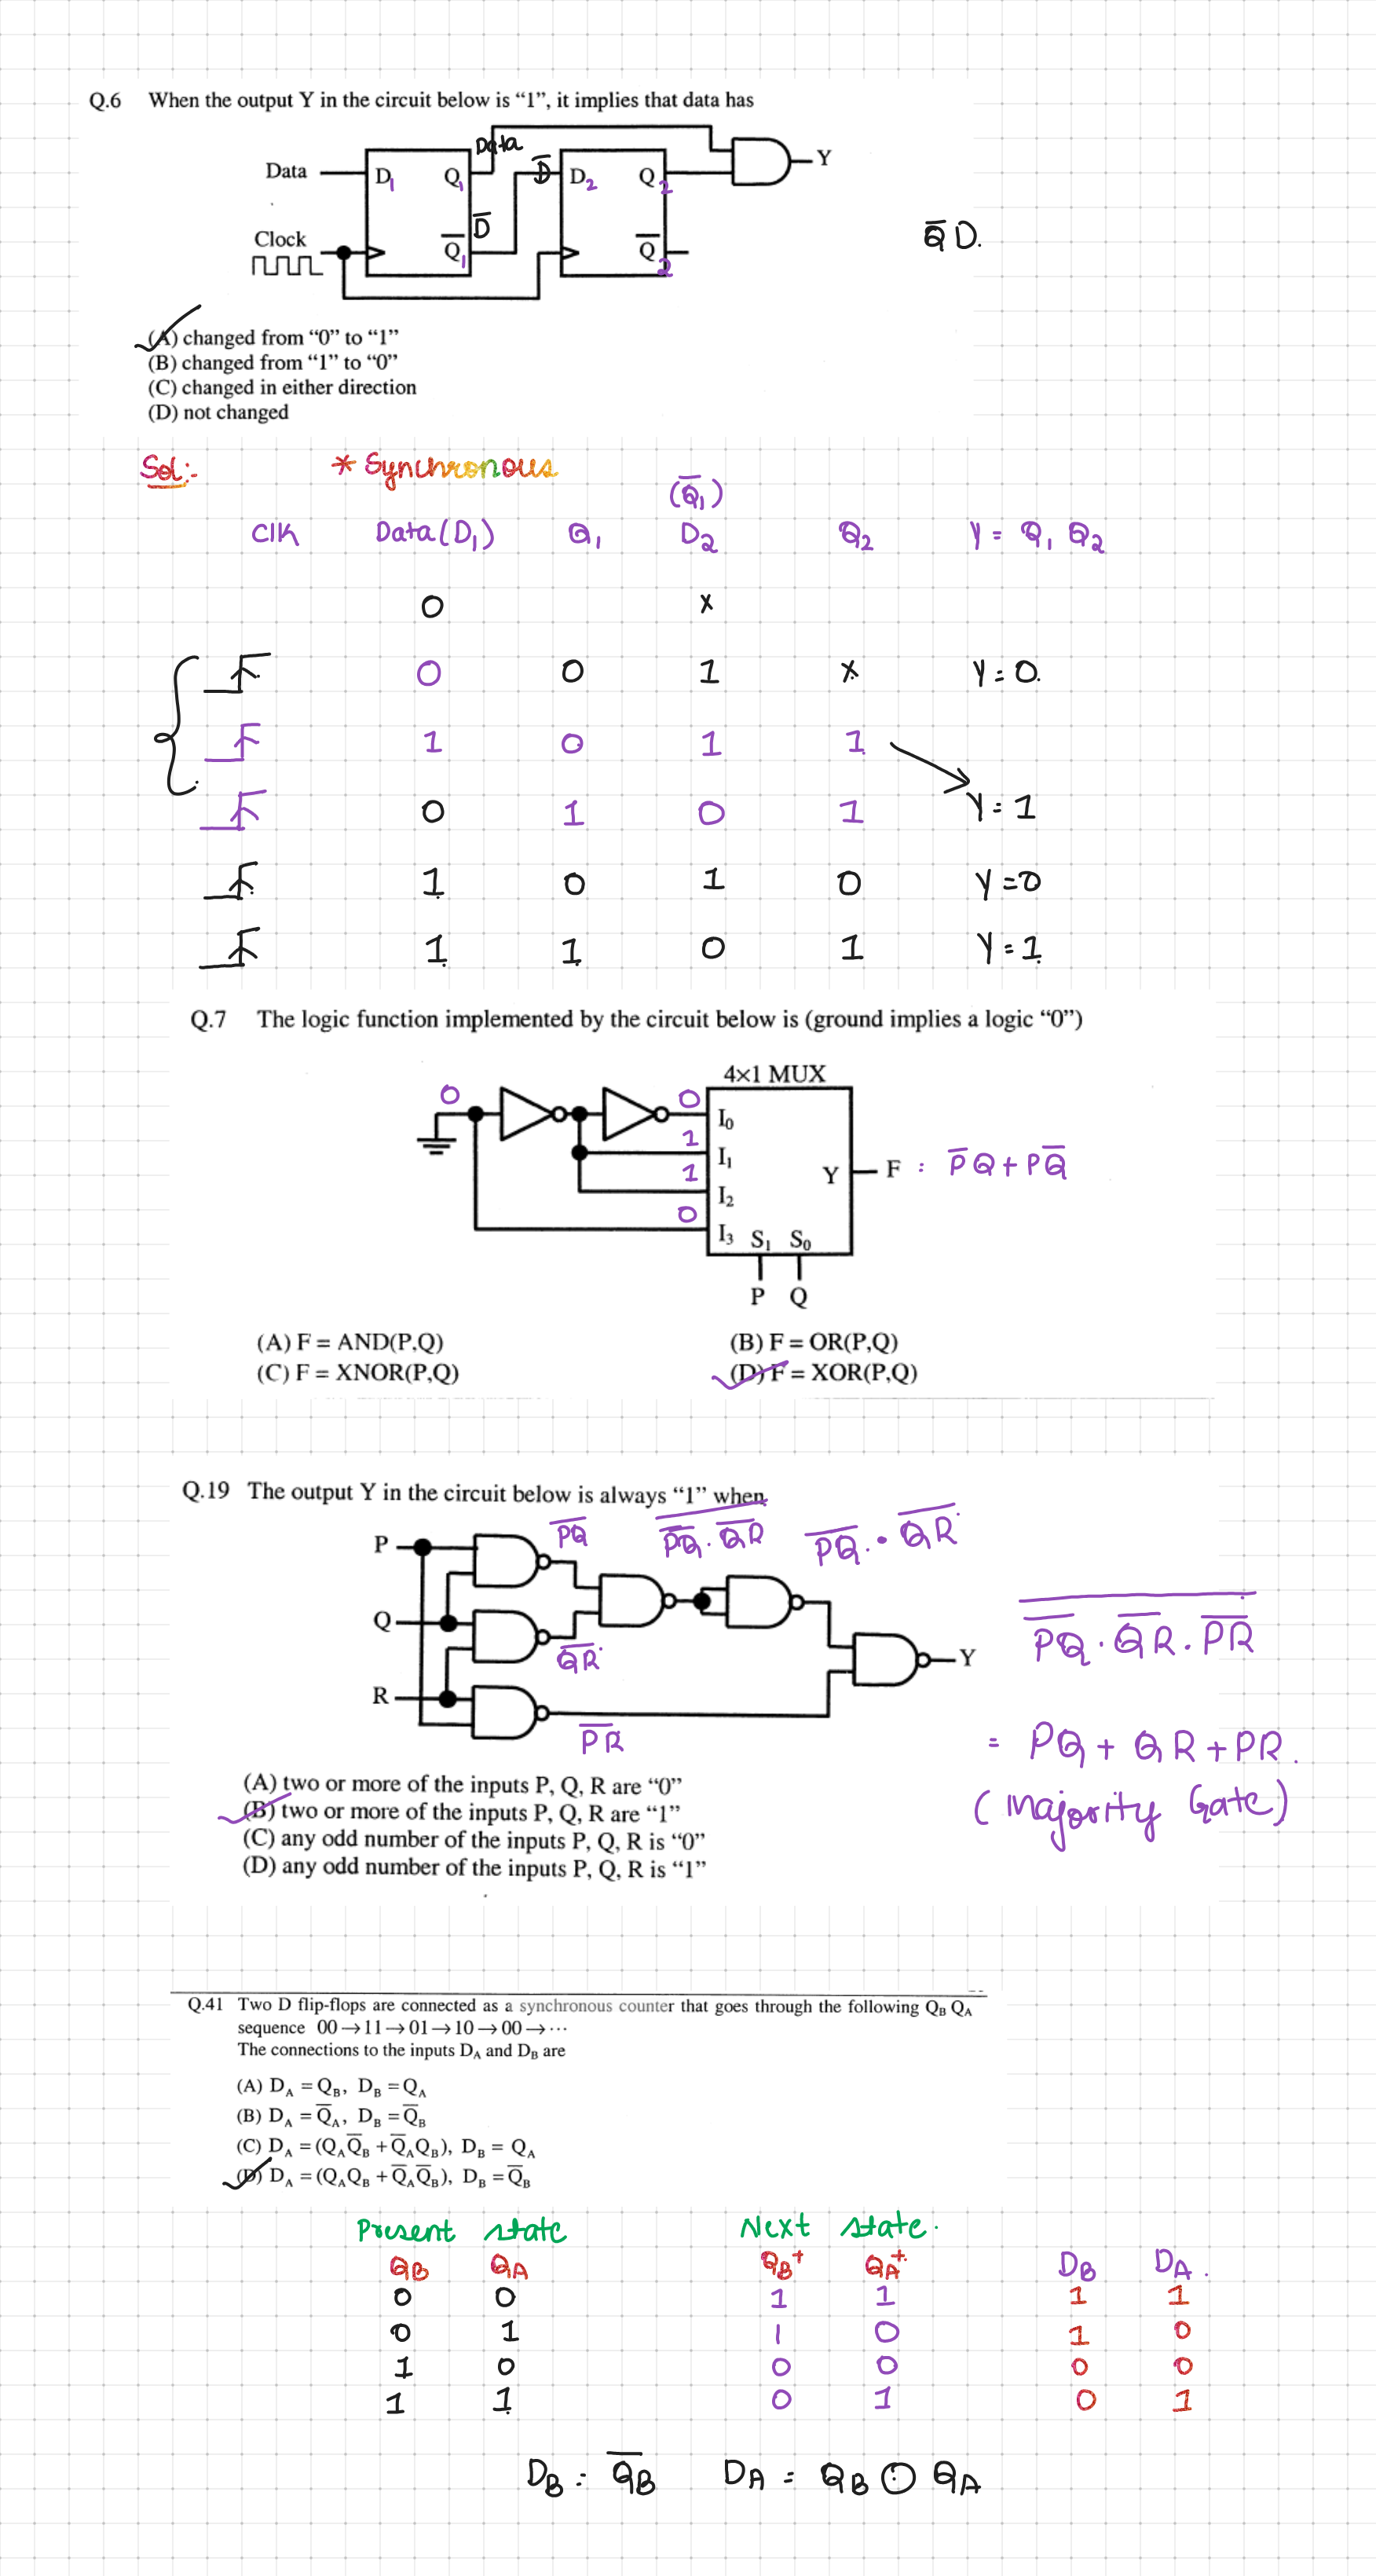 Q.6 When the output Y in the circuit below is “1”, it implies that data has
Data
Data D1 Q1 D̅ D2 Q2 Y
D̅
Clock Q̅1 Q̅2
Q̅ D.
(A) changed from “0” to “1”
(B) changed from “1” to “0”
(C) changed in either direction
(D) not changed
Sol:- * Synchronous
(Q̅1)
Clk Data(D1) Q1 D2 Q2 Y = Q1 Q2
0 x
0 0 1 x Y = 0.
1 0 1 1
0 1 0 1 Y = 1
1 0 1 0 Y = 0
1 1 0 1 Y = 1
Q.7 The logic function implemented by the circuit below is (ground implies a logic “0”)
4×1 MUX
0 0 I0
1 I1
1 I2 Y F : P̅Q + PQ̅
0 I3 S1 S0
P Q
(A) F = AND(P,Q) (B) F = OR(P,Q)
(C) F = XNOR(P,Q) (D) F = XOR(P,Q)
Q.19 The output Y in the circuit below is always “1” when
P $\overline{PQ}$ $\overline{\overline{PQ}.\overline{QR}}$ $\overline{PQ}.\overline{QR}$
Q $\overline{QR}$ Y $\overline{\overline{PQ}.\overline{QR}.\overline{PR}}$
R $\overline{PR}$
= PQ + QR + PR.
(Majority Gate)
(A) two or more of the inputs P, Q, R are “0”
(B) two or more of the inputs P, Q, R are “1”
(C) any odd number of the inputs P, Q, R is “0”
(D) any odd number of the inputs P, Q, R is “1”
Q.41 Two D flip-flops are connected as a synchronous counter that goes through the following QB QA
sequence 00→11→01→10→00→···
The connections to the inputs DA and DB are
(A) DA = QB, DB = QA
(B) DA = Q̅A, DB = Q̅B
(C) DA = (QAQ̅B + Q̅AQB), DB = QA
(D) DA = (QAQB + Q̅AQ̅B), DB = Q̅B
Present state Next state.
QB QA QB+ QA+ DB DA.
0 0 1 1 1 1
0 1 1 0 1 0
1 0 0 0 0 0
1 1 0 1 0 1
DB = Q̅B DA = QB ⊙ QA